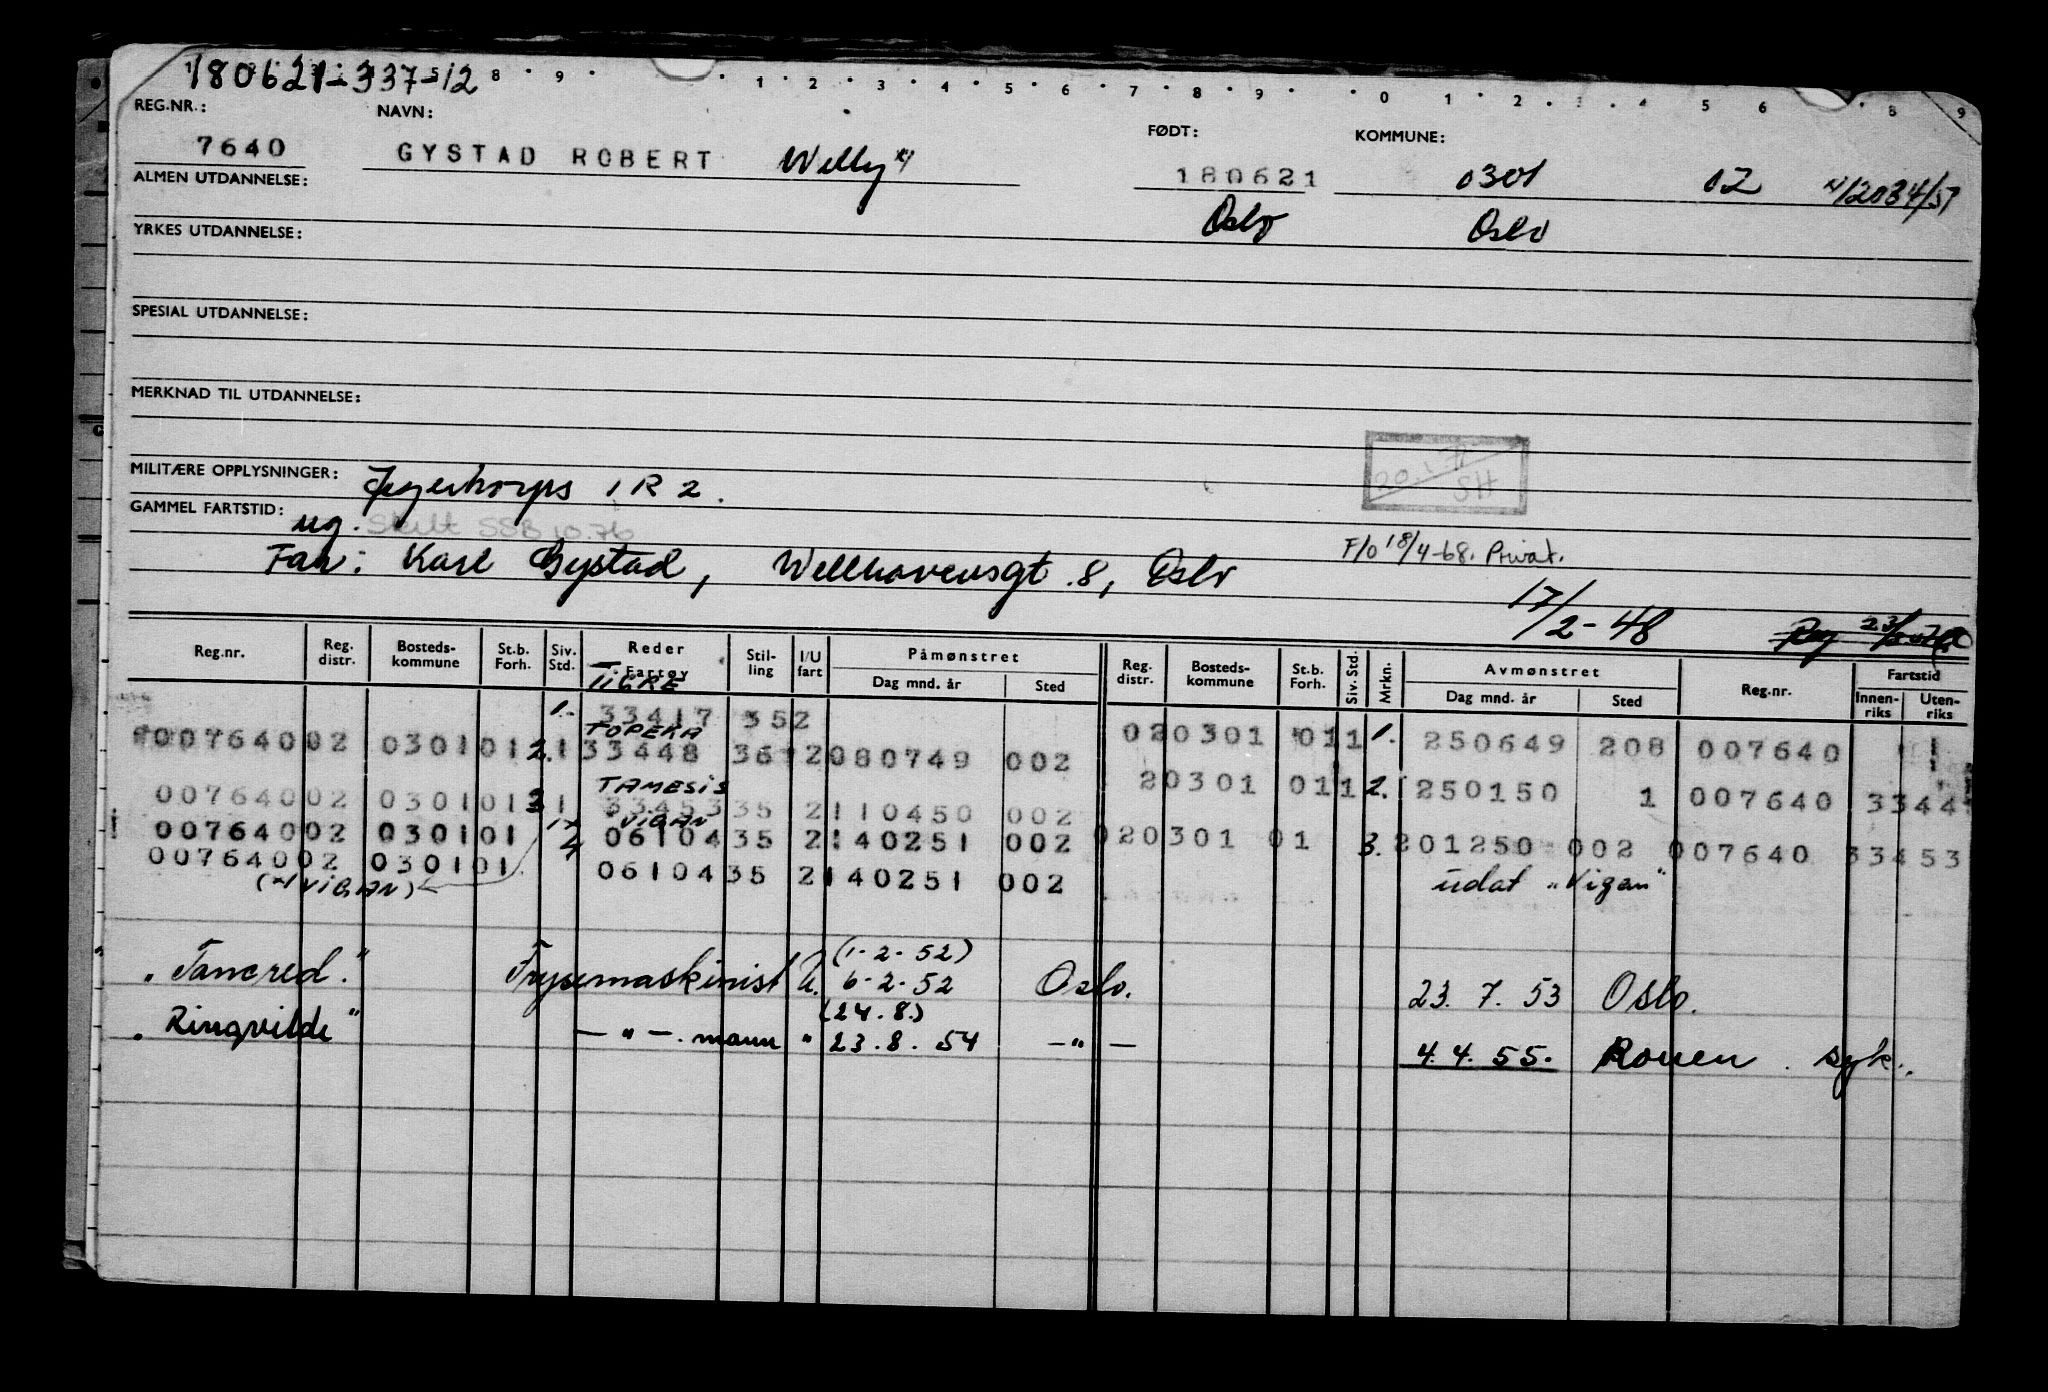 180621-337-12
8 9 1 2 3 4 5 6 7 8 9 0 1 2 3 4 5 6 8 9
REG.NR.: NAVN: FØDT: KOMMUNE:
7640 GYSTAD ROBERT Willy x) 180621 0301 02 x) 12084/57
ALMEN UTDANNELSE: Oslo Oslo
YRKES UTDANNELSE:
SPESIAL UTDANNELSE:
MERKNAD TIL UTDANNELSE:
MILITÆRE OPPLYSNINGER: Jegerkorps IR 2.
SH
GAMMEL FARTSTID: ug. Skilt SSB 10.76
F/O 18/4-68. Privat.
Far: Karl Gystad, Welhavensgt. 8, Oslo
17/2-48
Reg.nr. Reg. distr. Bosteds- kommune St.b. Forh. Siv. Std. Reder Fartøy Stil- ling I/U fart Påmønstret Dag mnd. år Sted Reg. distr. Bosteds- kommune St.b. Forh. Siv. Std. Mrkn. Avmønstret Dag mnd. år Sted Reg.nr. Fartstid Innen- riks Uten- riks
TIGRE
1.- 33417 352 020301 011 1. 250649 208 007640
TOPEKA
00764002 030101 2. 1 33448 361 2 080749 002 20301 011 2. 250150 1 007640 3344
TAMESIS
00764002 030101 3 1 33453 35 2 110450 002 020301 01 3. 201250 002 007640 33453
VIGAN
00764002 030101 4 06104 35 2 140251 002 udat "Vigan"
00764002 030101 06104 35 2 140251 002
(x) VIGAN)
(1-2-52)
"Tancred." Frysemaskinist U. 6-2-52 Oslo. 23. 7. 53 Oslo.
(24.8.)
"Ringvilde" — " —. mann " 23. 8. 54 — " — 4. 4. 55. Rouen. syk.